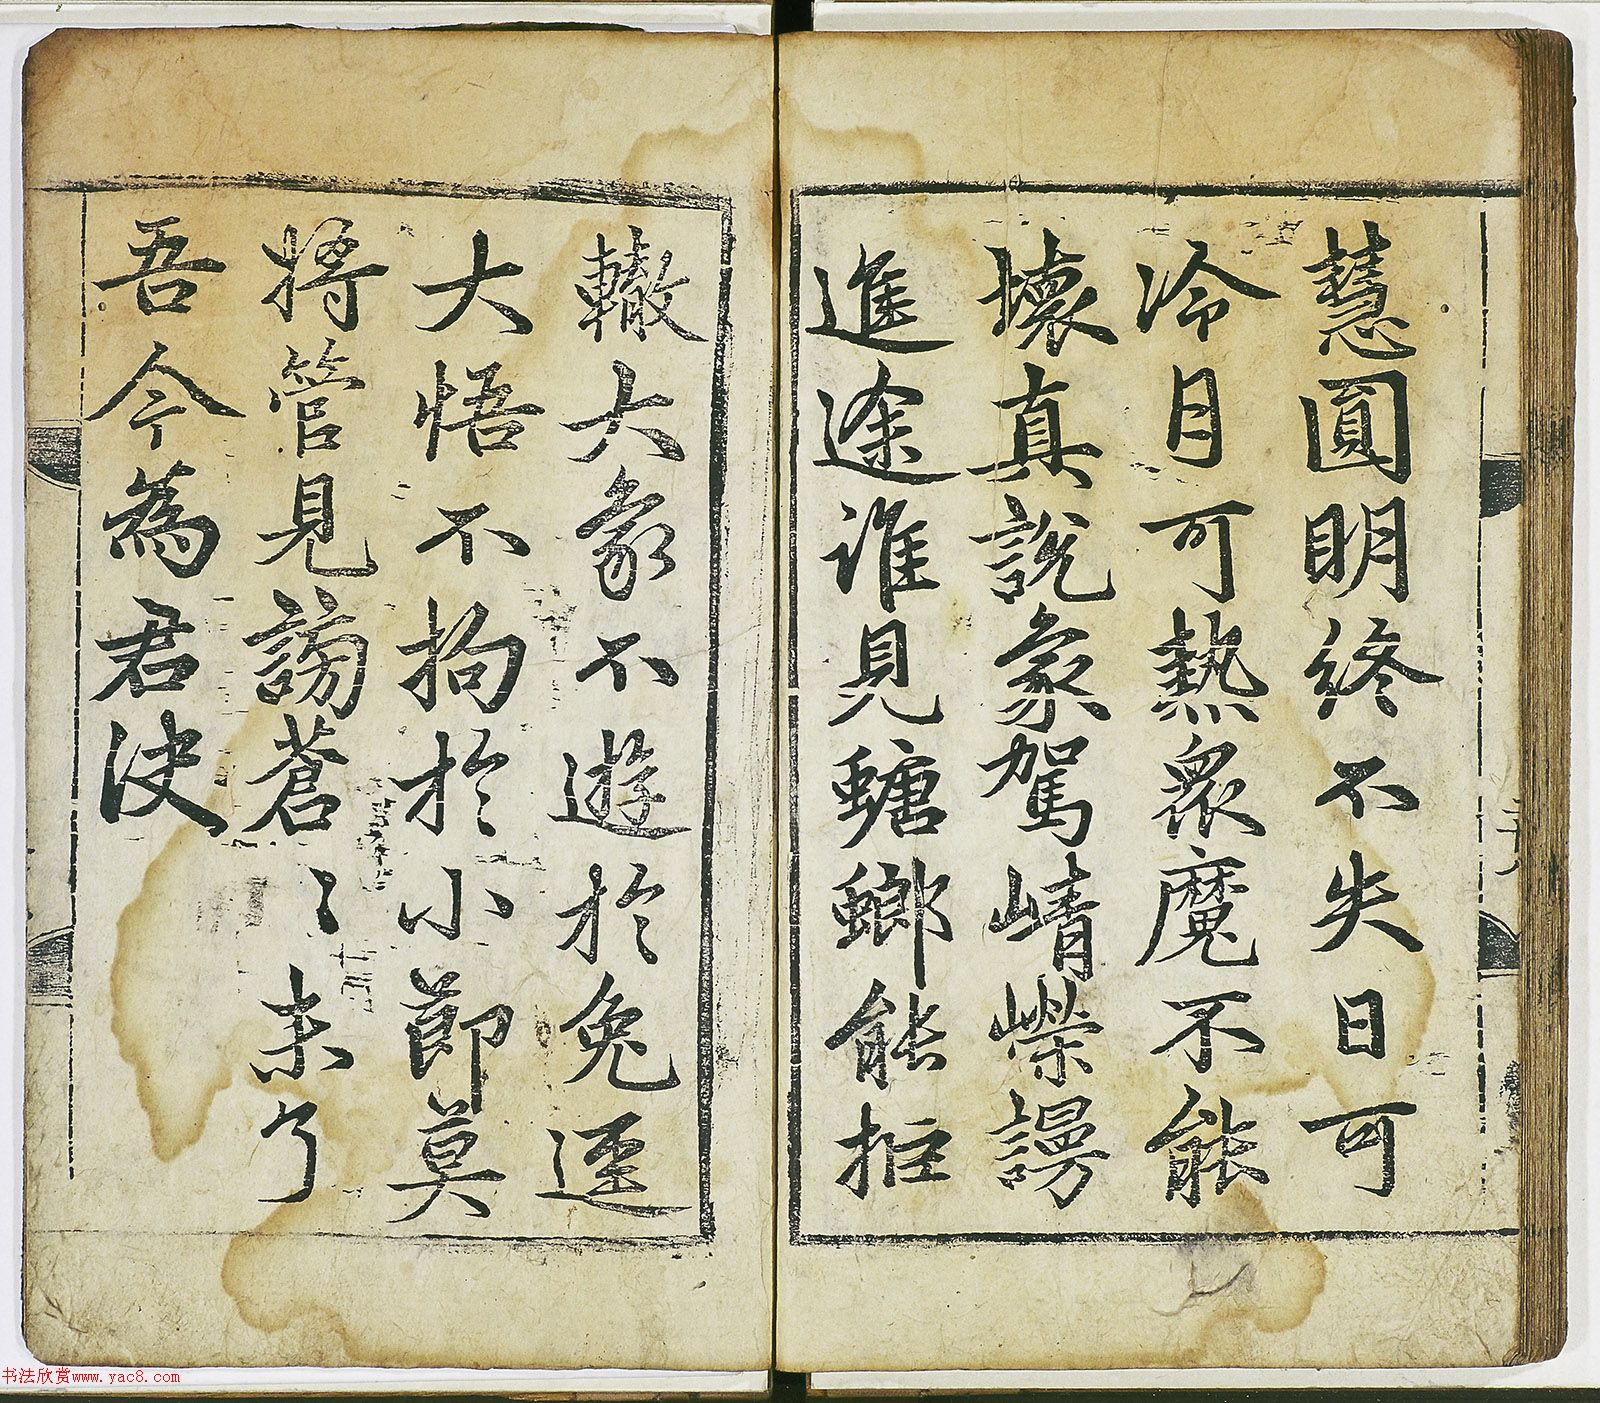 慧圓明終不失日可
冷月可熱眾魔不能
壞真說象駕崝嶸謾
進途誰見螗螂能拒
轍大象不遊於兔逕
大悟不拘於小節莫
將管見謗蒼〻未了
吾今為君決
书法欣赏www.yac8.com